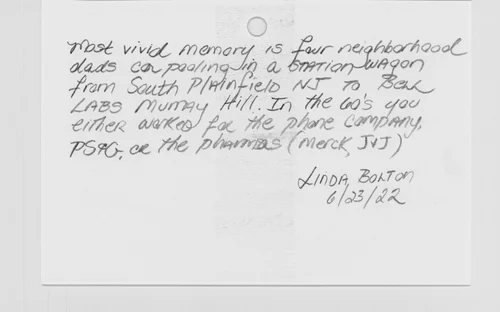 Most vivid memory is four neighborhood
dads car pooling in a STATION WAGON
from South Plainfield NJ to Bell
LABS Murray Hill. In the 60's you
either worked for the phone company,
PS&G, or the pharmas (Merck, J&J)
LINDA BOLTON
6/23/22